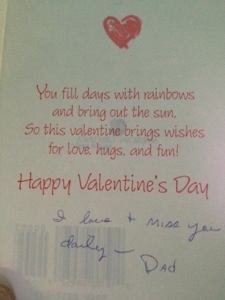 You fill days with rainbows
and bring out the sun.
So this valentine brings wishes
for love, hugs, and fun!
Happy Valentine's Day
I love + miss you
daily — DAD